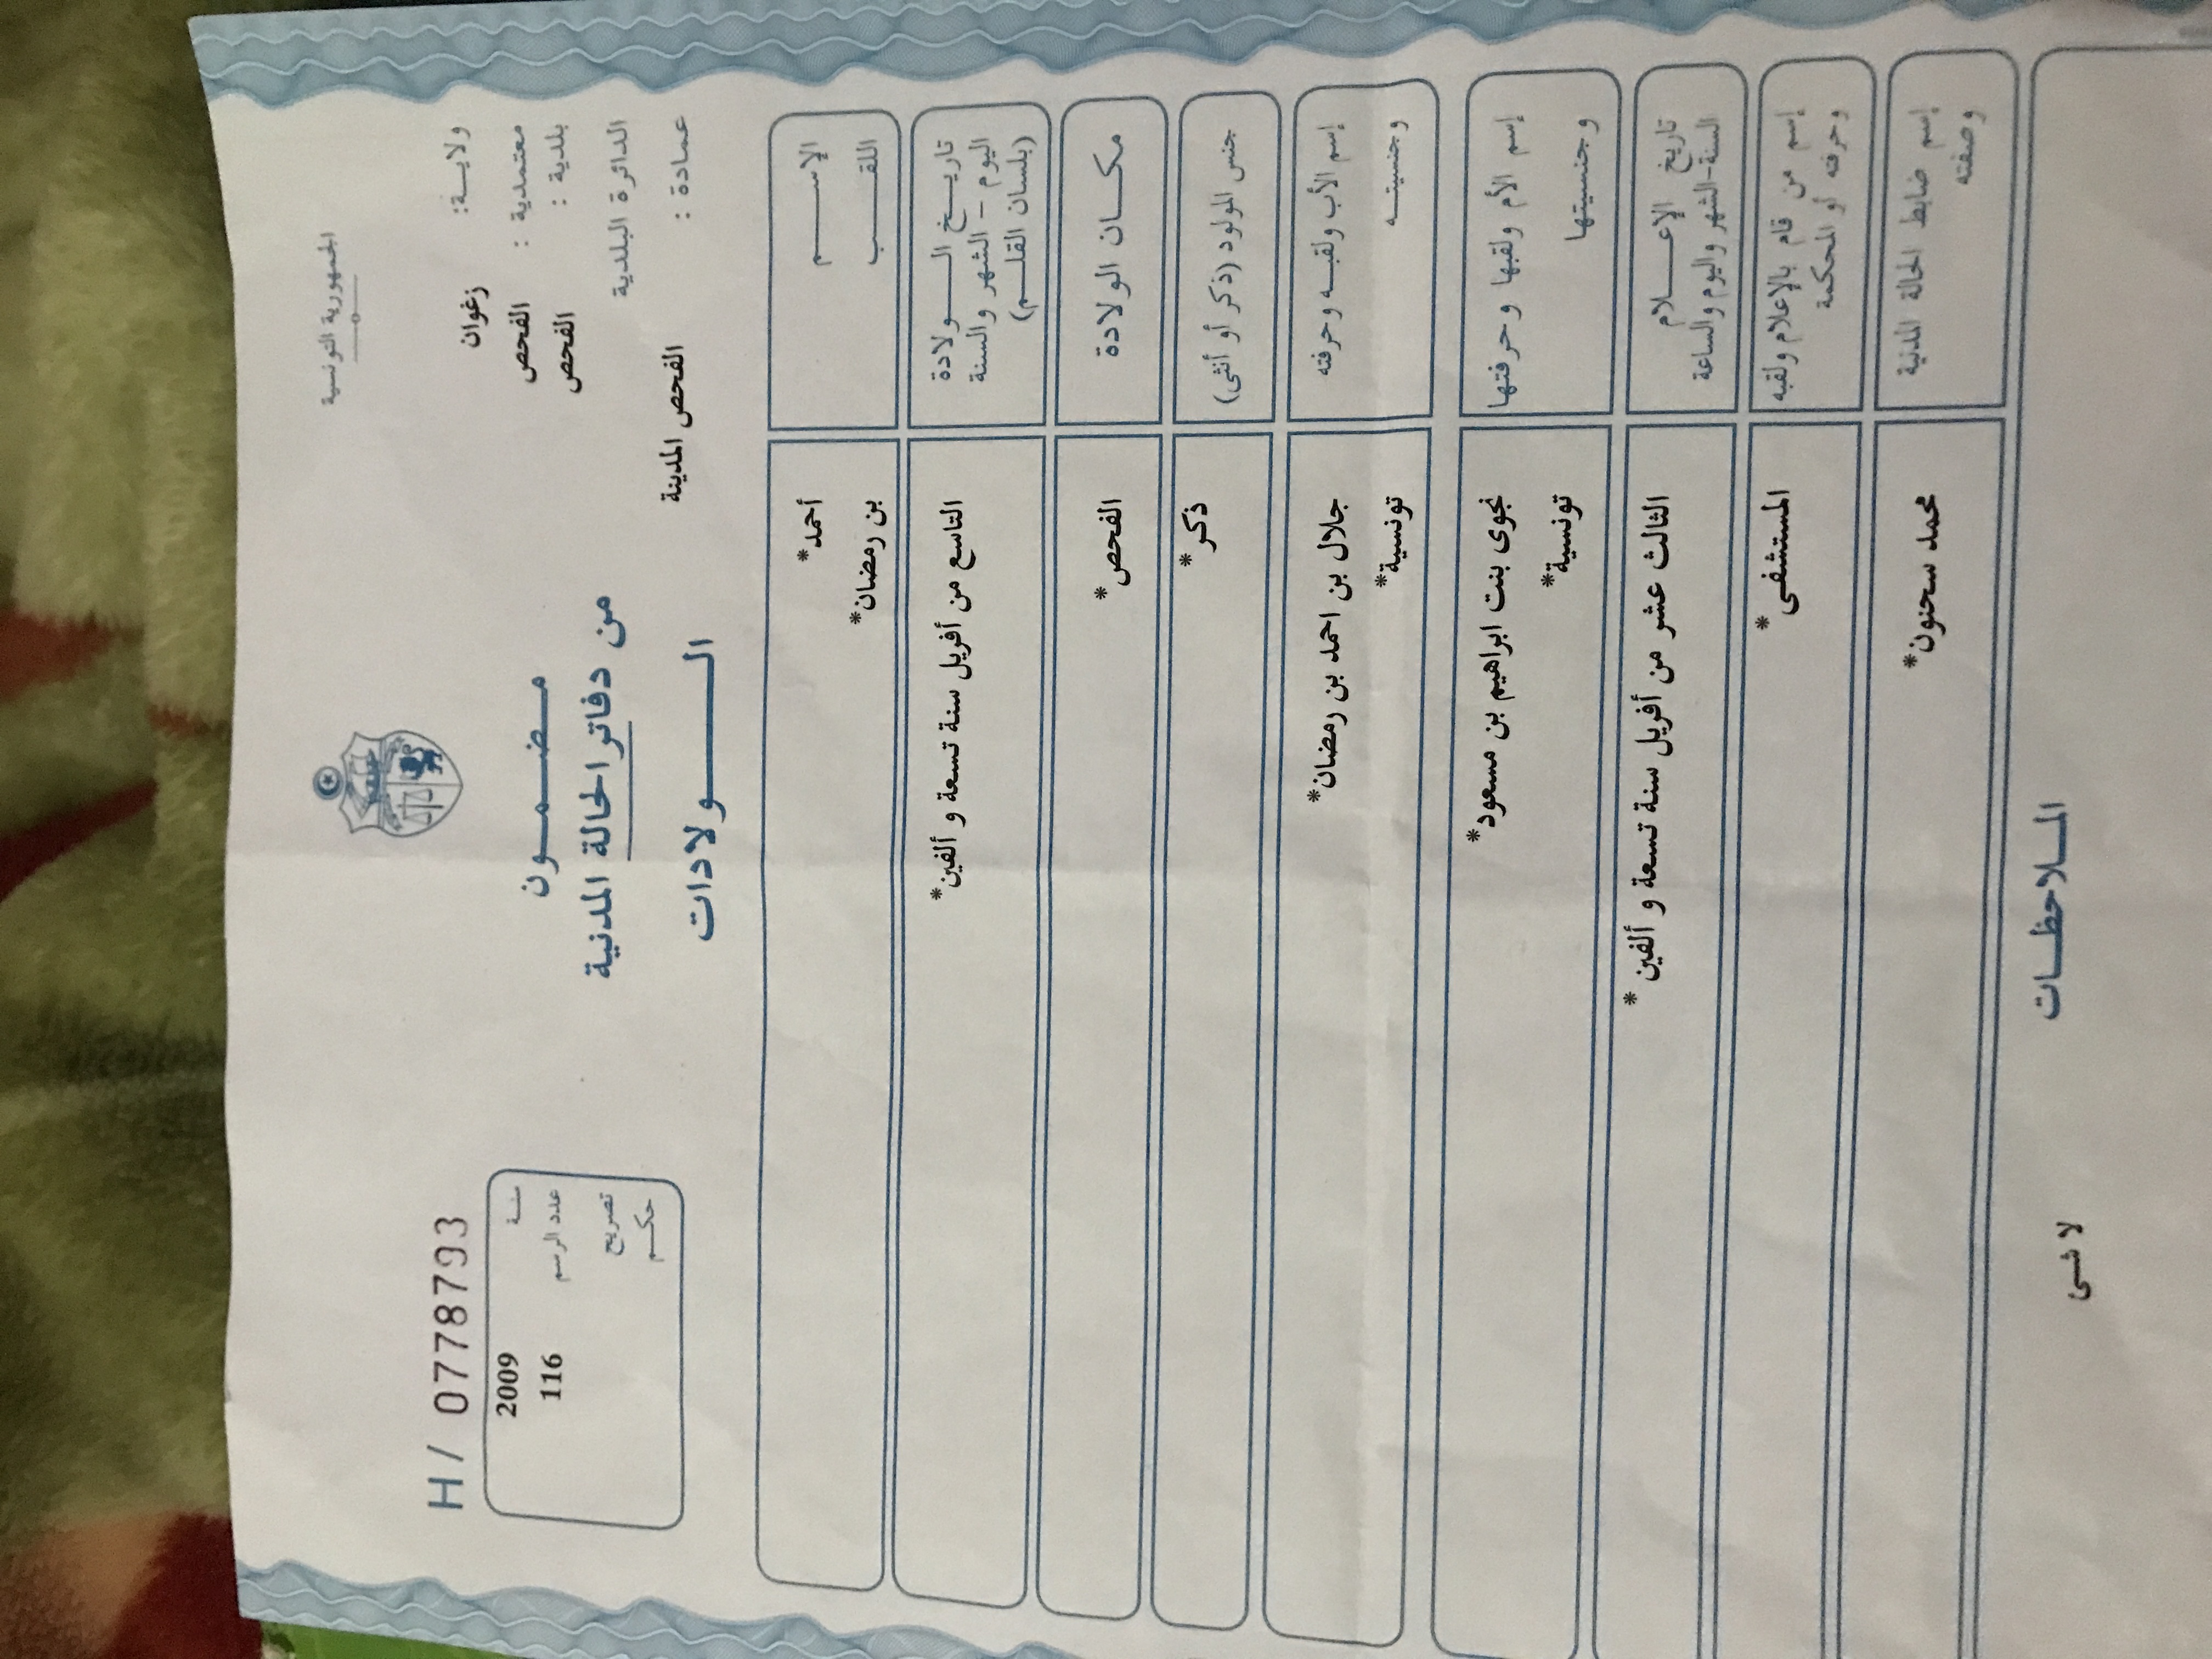 الجمهورية التونسية
ولاية: زغوان
معتمدية : الفحص
بلدية : الفحص
الدائرة البلدية
عمادة : الفحص المدينة
مضمون
من دفاتر الحالة المدنية
الولادات
H/ 0778793
سنة 2009
عدد الرسم 116
تصريح
حكم
الإسم أحمد*
اللقب بن رمضان*
تاريخ الولادة
اليوم - الشهر والسنة
(بلسان القلم)
التاسع من أفريل سنة تسعة و ألفين*
مكان الولادة الفحص*
جنس المولود (ذكر أو أنثى) ذكر*
إسم الأب ولقبه وحرفته جلال بن احمد بن رمضان*
وجنسيته تونسية*
إسم الأم ولقبها وحرفتها نجوى بنت ابراهيم بن مسعود*
وجنسيتها تونسية*
تاريخ الإعلام
السنة-الشهر واليوم والساعة
الثالث عشر من أفريل سنة تسعة و ألفين *
إسم من قام بالإعلام ولقبه
وحرفته أو المحكمة
المستشفى *
إسم ضابط الحالة المدنية
وصفته
محمد سحنون*
الملاحظات
لا شىء